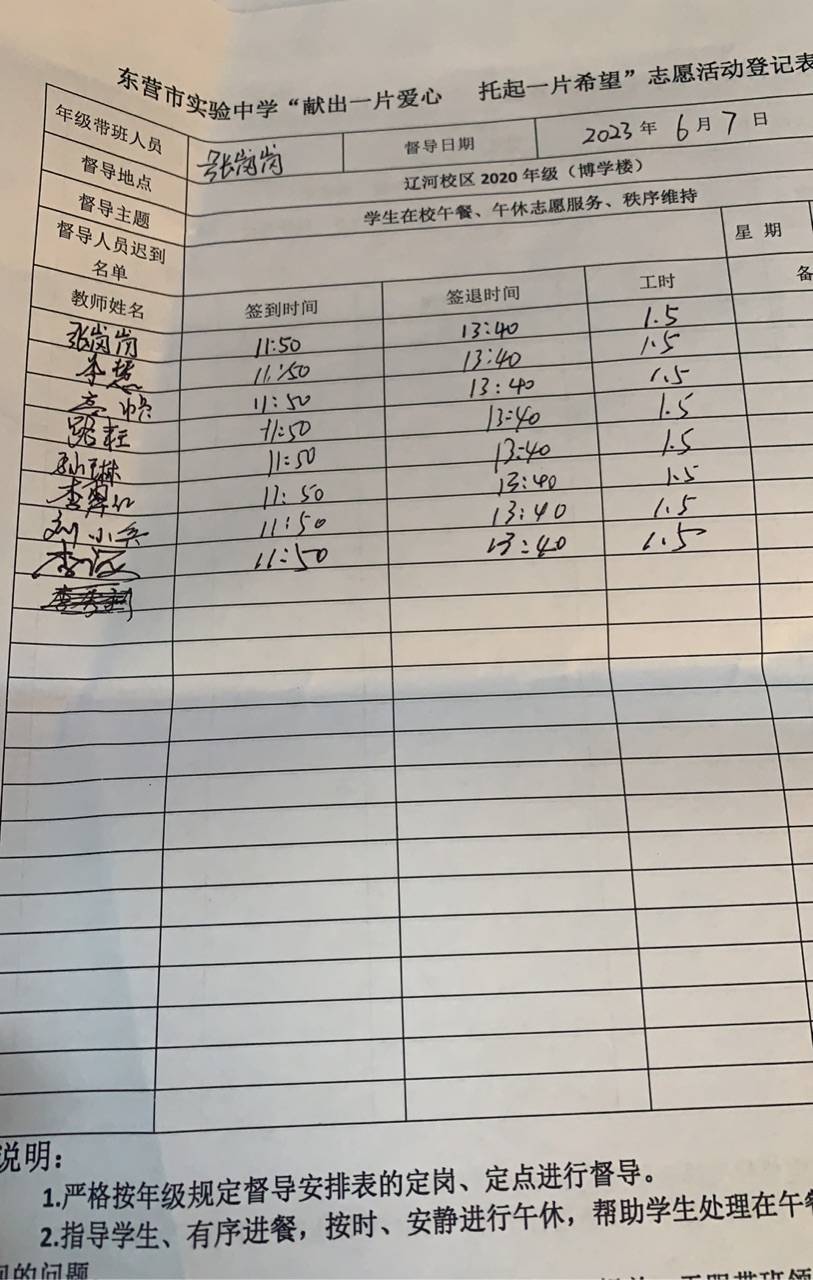 东营市实验中学“献出一片爱心 托起一片希望”志愿活动登记表
年级带班人员 张岗岗 督导日期 2023年 6月7日
督导地点 辽河校区 2020 年级（博学楼）
督导主题 学生在校午餐、午休志愿服务、秩序维持
督导人员迟到名单 星 期
教师姓名 签到时间 签退时间 工时 备
张岗岗 11:50 13:40 1.5
李 11:50 13:40 1.5
11:50 13:40 1.5
路 11:50 13:40 1.5
孙 11:50 13:40 1.5
李 11:50 13:40 1.5
刘小兵 11:50 13:40 1.5
李 11:50 13:40 1.5
说明：
1.严格按年级规定督导安排表的定岗、定点进行督导。
2.指导学生、有序进餐，按时、安静进行午休，帮助学生处理在午餐
间的问题